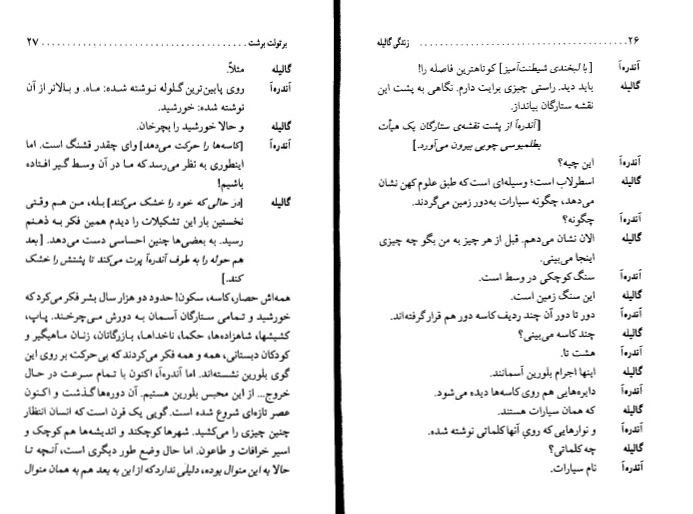 ۲۶ زندگی گالیله
آندره‌آ [با لبخندی شیطنت‌آمیز] کوتاهترین فاصله را!
گالیله باید دید. راستی چیزی برایت دارم. نگاهی به پشت این
نقشه ستارگان بیانداز.
[آندره‌آ از پشت نقشه‌ی ستارگان یک هیأت
بطلمیوسی چوبی بیرون می‌آورد.]
آندره‌آ این چیه؟
گالیله اسطرلاب است؛ وسیله‌ای است که طبق علوم کهن نشان
می‌دهد، چگونه سیارات به‌دور زمین می‌گردند.
آندره‌آ چگونه؟
گالیله الان نشان می‌دهم. قبل از هر چیز به من بگو چه چیزی
اینجا می‌بینی.
آندره‌آ سنگ کوچکی در وسط است.
گالیله این سنگ زمین است.
آندره‌آ دور تا دور آن چند ردیف کاسه دور هم قرار گرفته‌اند.
گالیله چند کاسه می‌بینی؟
آندره‌آ هشت تا.
گالیله اینها اجرام بلورین آسمانند.
آندره‌آ دایره‌هایی هم روی کاسه‌ها دیده می‌شود.
گالیله که همان سیارات هستند.
آندره‌آ و نوارهایی که روی آنها کلماتی نوشته شده.
گالیله چه کلماتی؟
آندره‌آ نام سیارات.
برتولت برشت ۲۷
گالیله مثلاً.
آندره‌آ روی پایین‌ترین گلوله نوشته شده: ماه. و بالاتر از آن
نوشته شده: خورشید.
گالیله و حالا خورشید را بچرخان.
آندره‌آ [کاسه‌ها را حرکت می‌دهد] وای چقدر قشنگ است. اما
اینطوری به نظر می‌رسد که ما در آن وسط گیر افتاده
باشیم!
گالیله [در حالی که خود را خشک می‌کند] بله، من هم وقتی
نخستین بار این تشکیلات را دیدم همین فکر به ذهنم
رسید. به بعضی‌ها چنین احساسی دست می‌دهد. [بعد
هم حوله را به طرف آندره‌آ پرت می‌کند تا پشتش را خشک
کند.]
همه‌اش حصار، کاسه، سکون! حدود دو هزار سال بشر فکر می‌کرد که
خورشید و تمامی ستارگان آسمان به دورش می‌چرخند. پاپ،
کشیشها، شاهزاده‌ها، حکما، ناخداها، بازرگانان، زنان ماهیگیر و
کودکان دبستانی، همه و همه فکر می‌کردند که بی‌حرکت بر روی این
گوی بلورین نشسته‌اند. اما آندره‌آ، اکنون با تمام سرعت در حال
خروج... از این محبس بلورین هستیم. آن دوره‌ها گذشت و اکنون
عصر تازه‌ای شروع شده است. گویی یک قرن است که انسان انتظار
چنین چیزی را می‌کشید. شهرها کوچکند و اندیشه‌ها هم کوچک و
اسیر خرافات و طاعون. اما حال وضع طور دیگری است، آنچه تا
حالا به این منوال بوده، دلیلی ندارد که از این به بعد هم به همان منوال